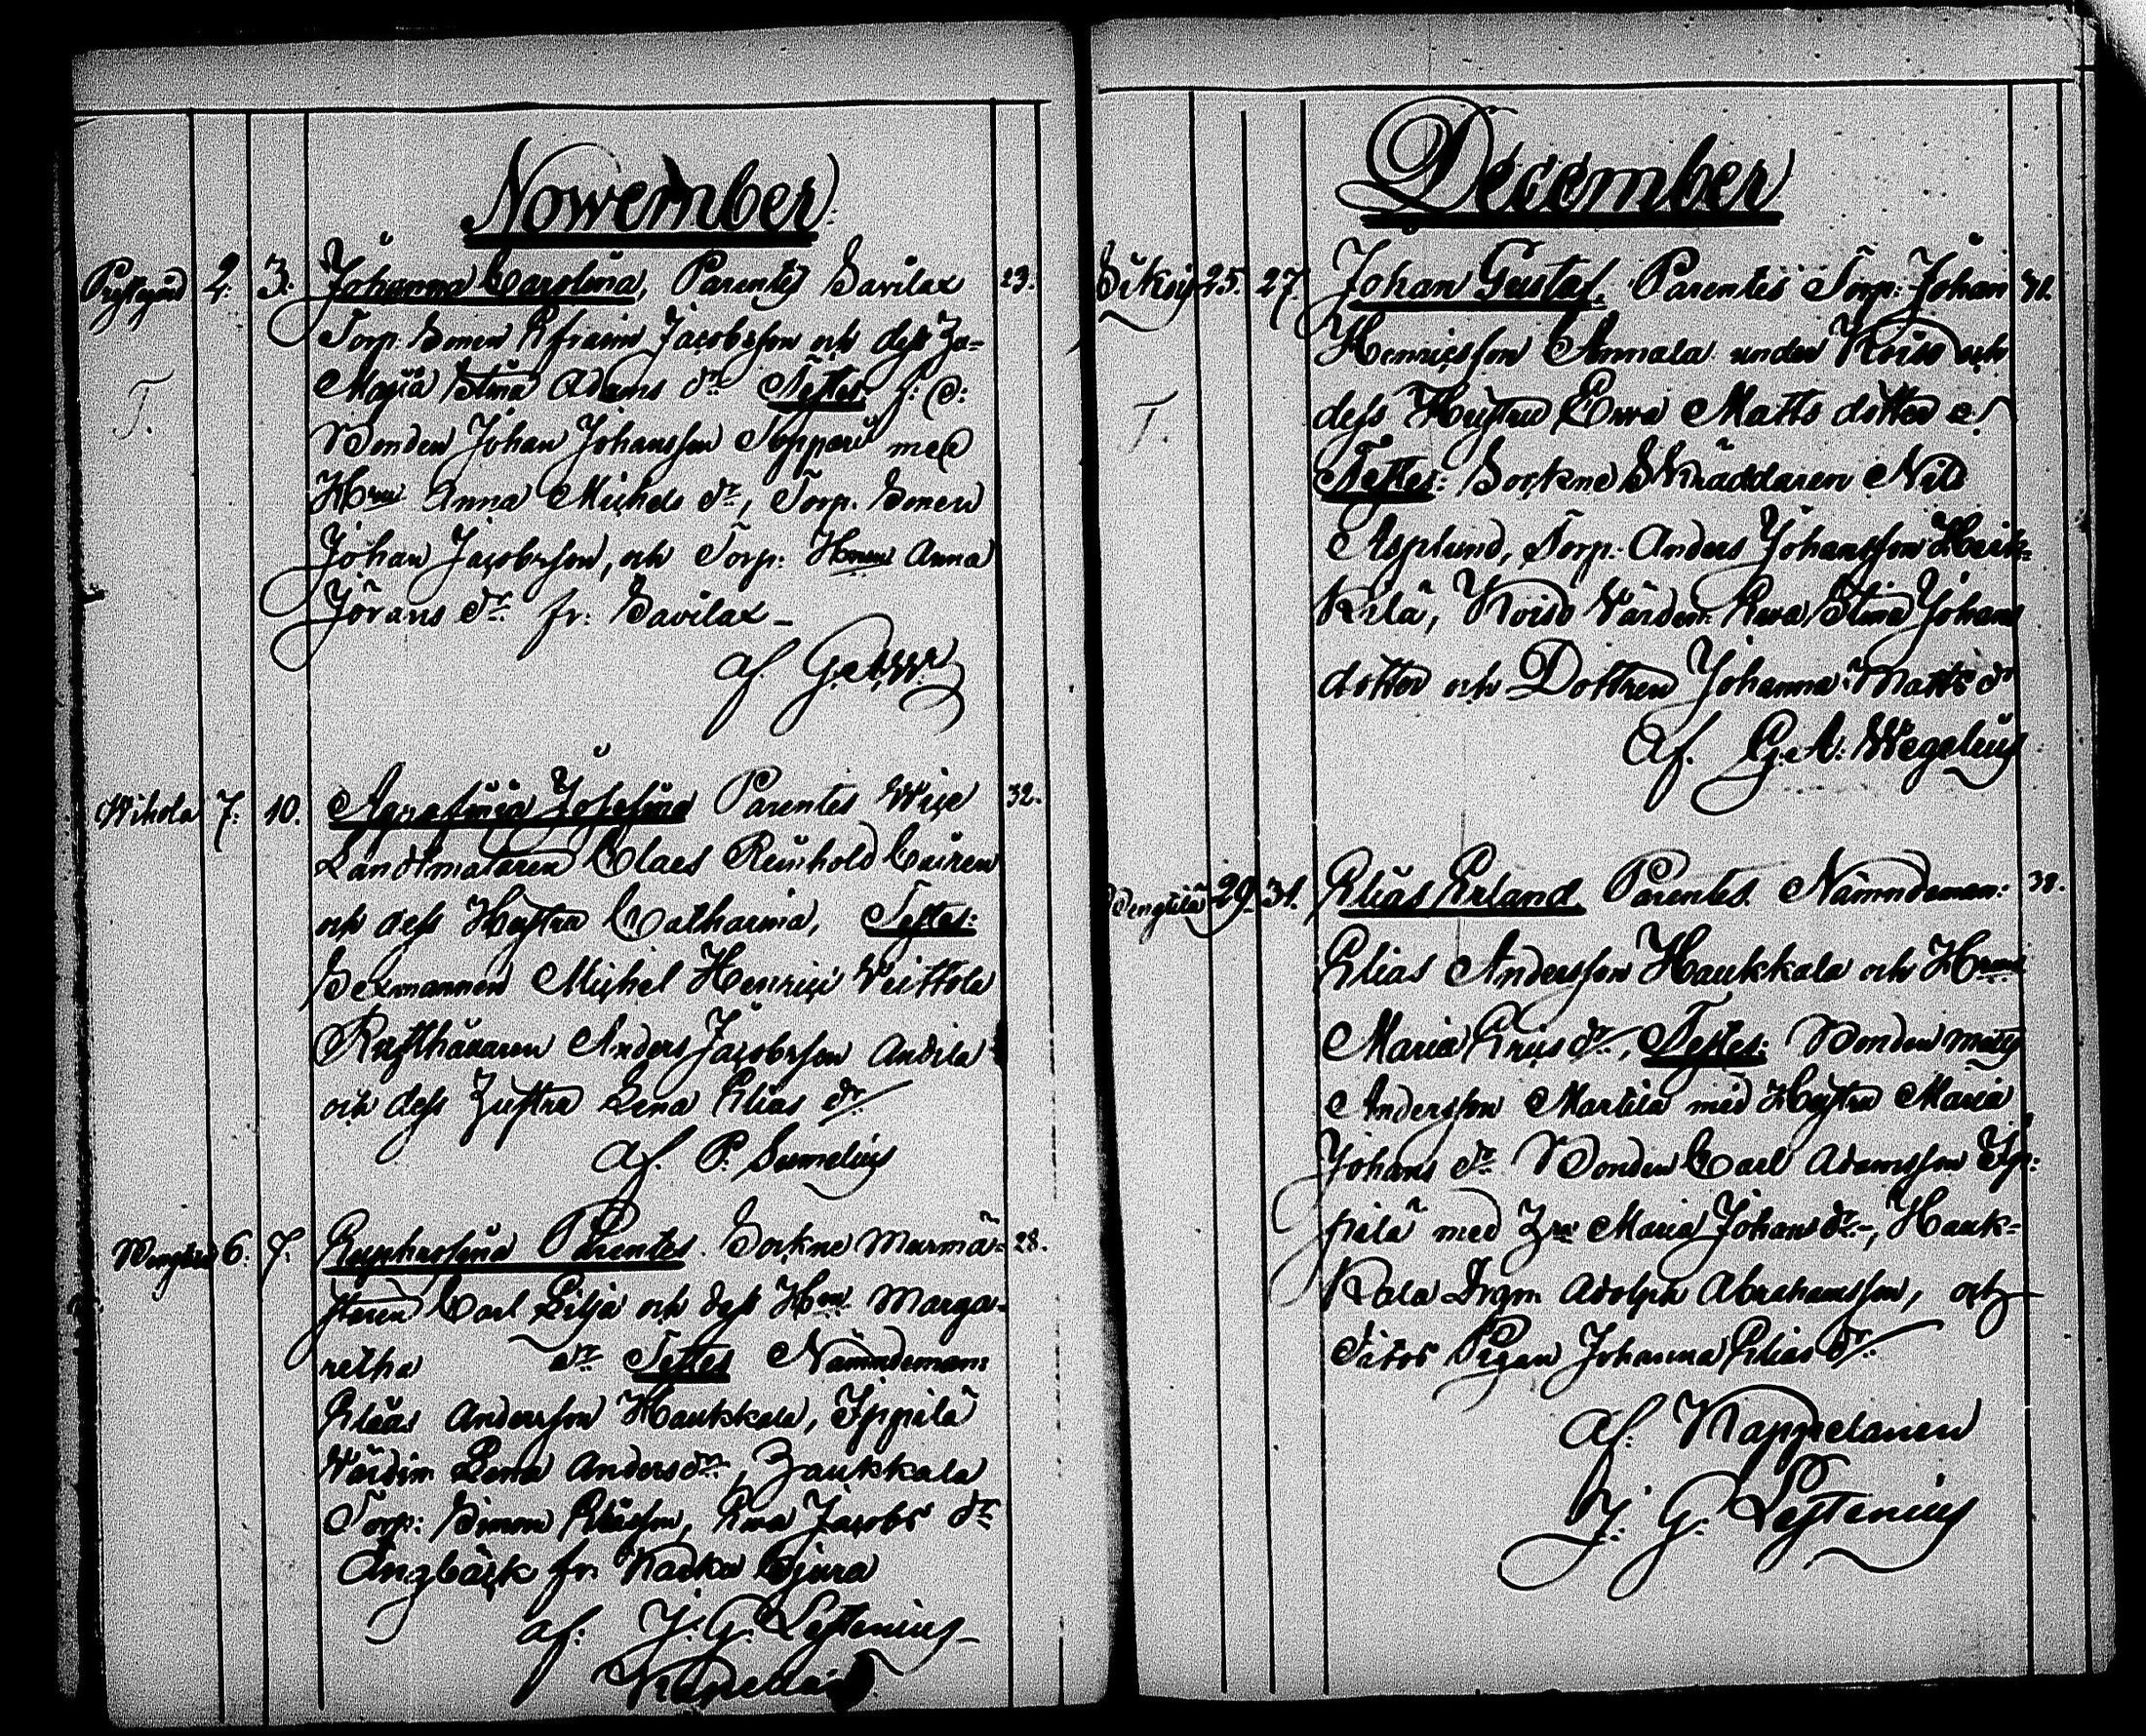 Nowember
2. 3. Johanna Carolina, Parentes Savilax 23.
Torp. Sonen Efraim Jacobsson och dess Hu-
Maria Stina Adams dr Testes:
T.
Bonden Johan Johansson med
Hru Anna Michels dr, Torp. Sonen
Johan Jacobsson, och Torp: Anna
Jörans dr fr: Savilax
af G.A.W.
Wihola 7. 10. Agrafina Josefina Parentes Wice 32.
Landtmätaren Claes Reinhold
och dess Hustru Catharina, Testes:
Michel Henrici
Rusthållaren Anders Jacobsson Andila
och dess Hustru Lena Elias dr
af P. Sumelius
6. 7. Euphrosina Parentes. Sockne Murmä- 28.
staren Carl Lilja och dess Hru Marga-
retha dr Testes Nämndeman:
Elias Andersson Haukkala, Ippilä
Värdin: Lena Anders dr, Haukkala
Torp: Simon Eliasson, Ewa Jacobs dr
fr:
af: J. G. Lestenius
December
25. 27. Johan Gustaf. Parentes Torp: Johan 31.
Henricsson Annala under Koiso och
dess Hustru Ewa Matts dotter
T.
Testes: Sockne Skräddaren Nils
Asplund, Torp. Anders Johansson Heik-
kilä, Koiso Värdin: Ewa Stina Johans
dotter och Dottren Johanna Matts dr
af. G. A: Wegelius
29. 31. Elias Erland Parentes. Nämndeman: 38.
Elias Andersson Haukkala och Hrun
Maria Erics dr, Testes: Bonden Matts
Andersson Martila med Hustru Maria
Johans dr Bonden Carl Adamsson Ip-
pilä med Hru Maria Johans dr, Hauk-
kala Drgn Adolph Abrahamsson, och
Pigan Johanna Elias dr.
af: Kappelanen
J. G. Lestenius